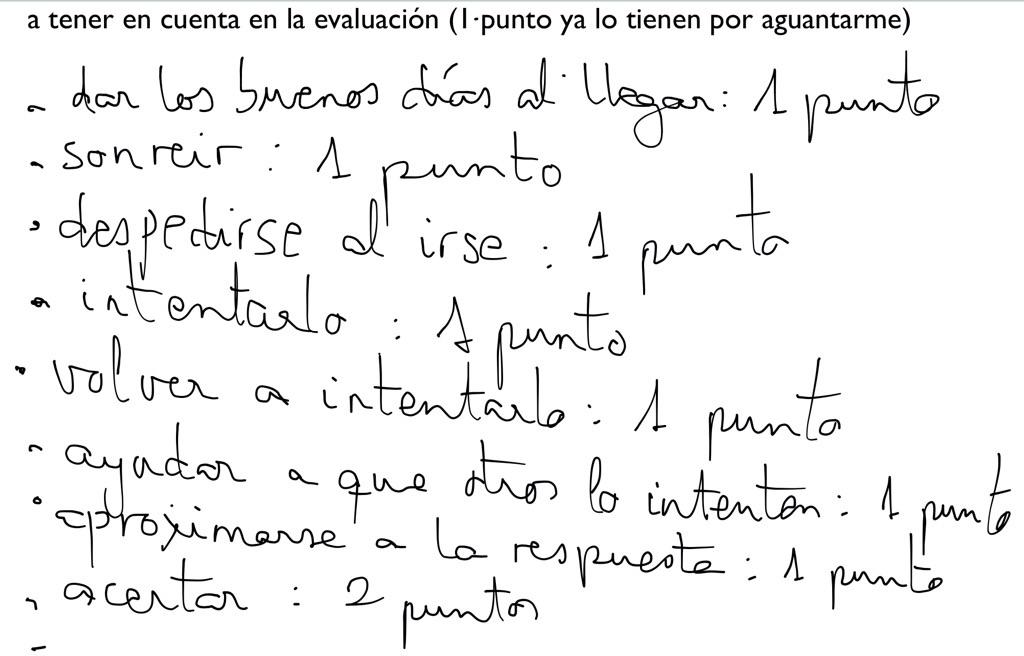 a tener en cuenta en la evaluación (1·punto ya lo tienen por aguantarme)
- dar los buenos días al llegar: 1 punto
- sonreir: 1 punto
- despedirse al irse: 1 punto
- intentarlo: 1 punto
- volver a intentarlo: 1 punto
- ayudar a que otros lo intenten: 1 punto
- aproximarse a la respuesta: 1 punto
- acertar: 2 puntos
-